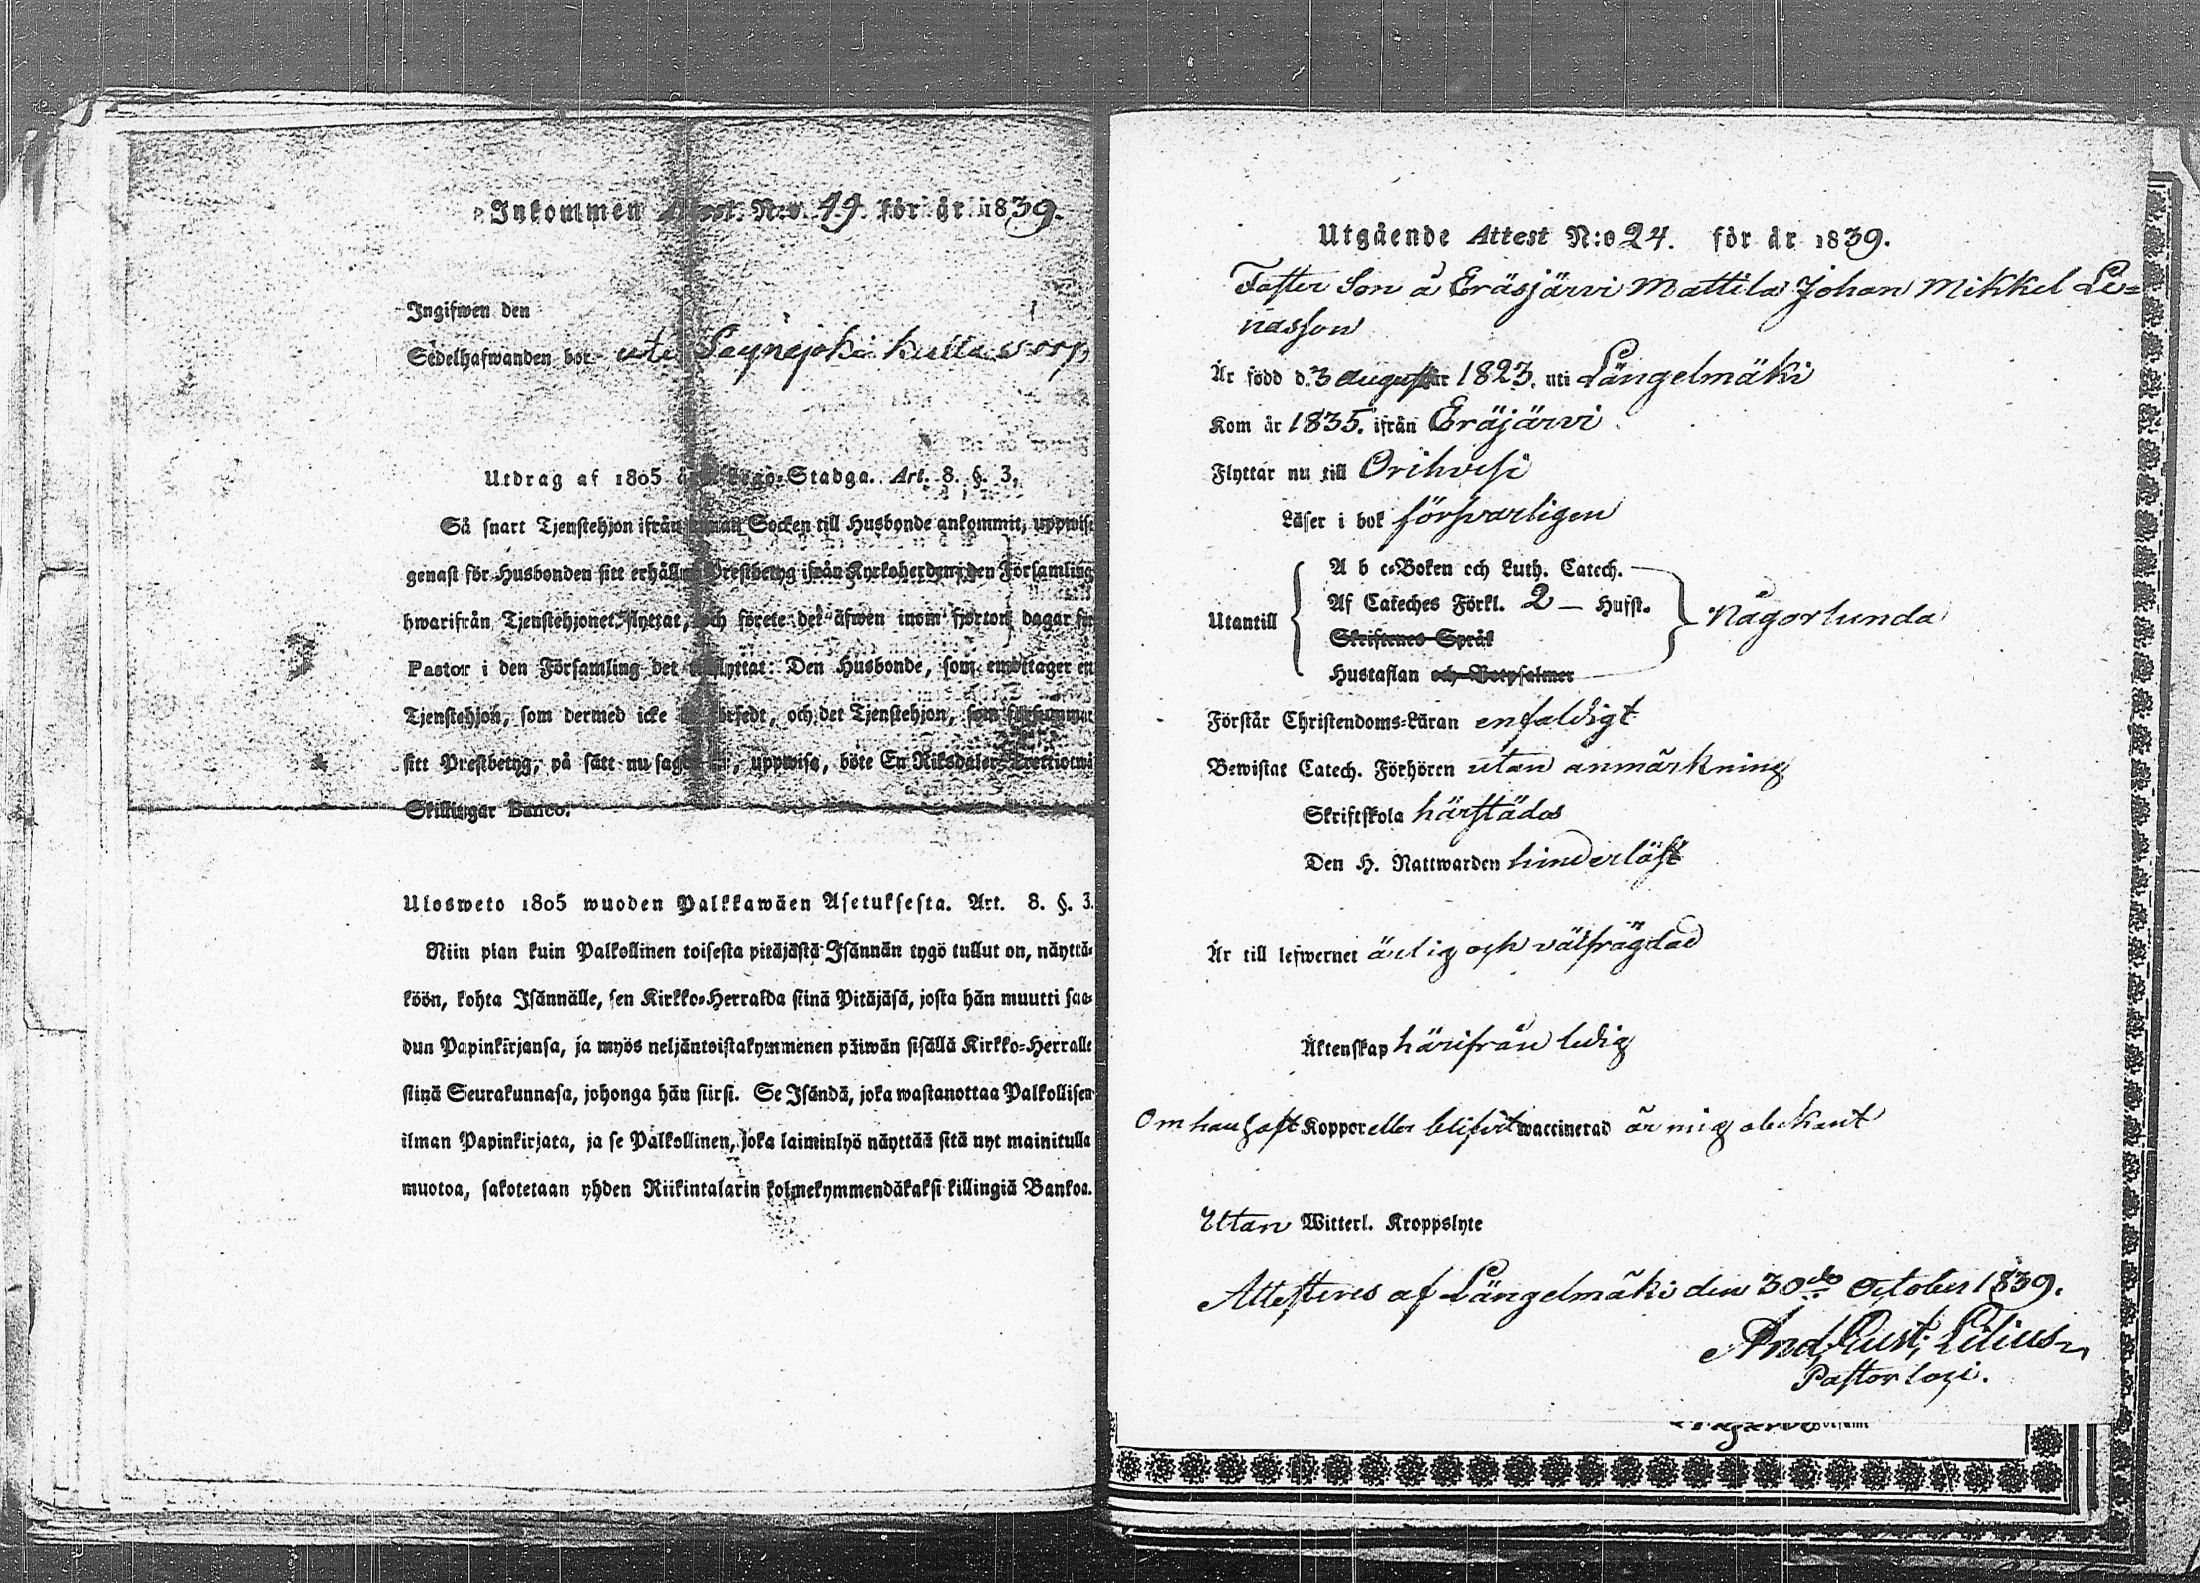 Inkommen Attest N:o 49. för år 1839.
Ingifwen den
Sedelhafwanden bor uti Seynejoki kulla
Utdrag af 1805 års Lego-Stadga. Art. 8. §. 3.
Så snart Tjenstehjon ifrån annan Socken till Husbonde ankommit, uppwise
genast för Husbonden sitt erhållna Prestbetyg ifrån Kyrkoherden i den Församling
hwarifrån Tjenstehjonet flyttat, och förete det äfwen inom fjorton dagar för
Pastor i den Församling det tillflyttat. Den Husbonde, som emottager en
Tjenstehjon, som dermed icke är försedt, och det Tjenstehjon, som försummar
sitt Prestbetyg, på sätt nu sagdt är, uppwisa, böte En Riksdaler Trettiotwå
Skillingar Banco.
Ulosweto 1805 wuoden Palkkawäen Asetuksesta. Art. 8. §. 3.
Niin pian kuin Palkollinen toisesta pitäjästä Isännän tygö tullut on, näyttä-
köön, kohta Isännälle, sen Kirkko-Herralda siinä Pitäjäsä, josta hän muutti saa-
dun Papinkirjansa, ja myös neljäntoistakymmenen päiwän sisällä Kirkko-Herralle
siinä Seurakunnasa, johonga hän siirsi. Se Isändä, joka wastanottaa Palkollisen
ilman Papinkirjata, ja se Palkollinen, joka laiminlyö näyttää sitä nyt mainitulla
muotoa, sakotetaan yhden Riikintalarin kolmekymmendäkaksi killingiä Bankoa.
Utgående Attest N:o 24. för år 1839.
Foster Son å Eräsjärvi Mattila Johan Mikkel Le=
nasson
Är född d. 3 August år 1823. uti Längelmäki
Kom år 1835. ifrån Eräjärvi
Flyttar nu till Orihvesi
Läser i bok försvarligen
Utantill
A b c-Boken och Luth. Catech.
Af Cateches Förkl. 2 — Hufst.
Skriftenes Språk
Hustaflan och Botpsalmer
Någorlunda
Förstår Christendoms-Läran enfaldigt
Bewistat Catech. Förhören utan anmärkning
Skriftskola härstädes
Den H. Nattwarden hinderlöst
Är till lefwernet ärlig och välfrägdad
Äktenskap härifrån ledig
Om han haft Koppor eller blifvit waccinerad är mig obekant
Utan Witterl. Kroppslyte
Attesteres af Längelmäki den 30de October 1839.
And. Gust. Lilius
Pastor loci.